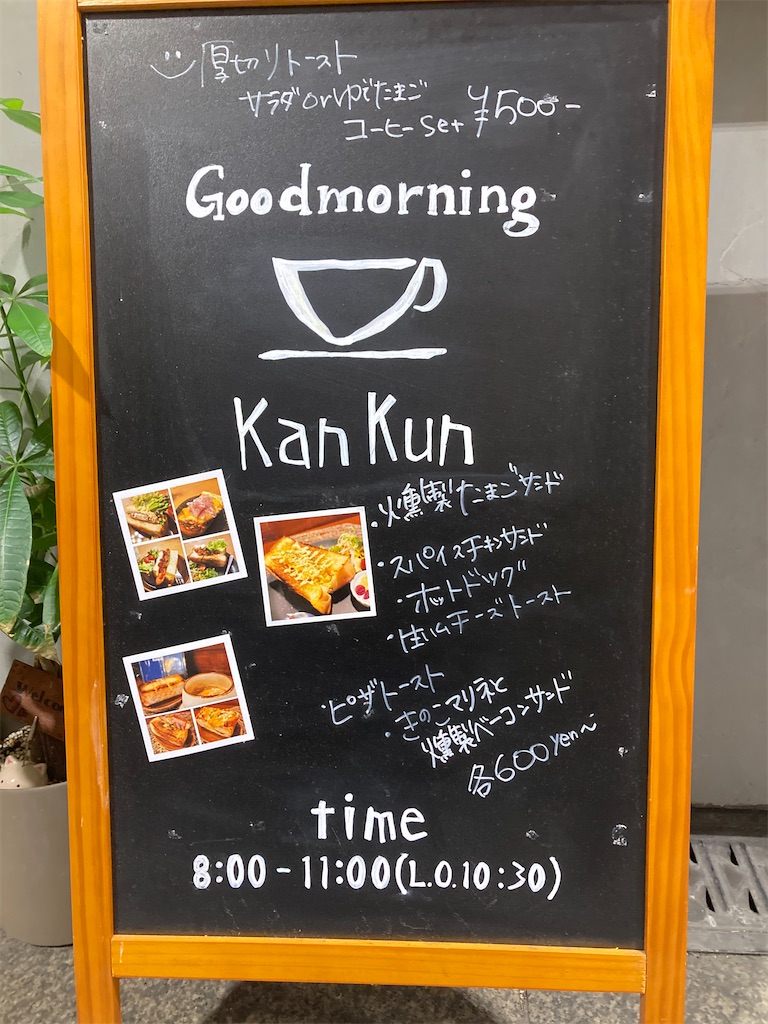 厚切りトースト
サラダorゆでたまご
コーヒーset ¥500-
Goodmorning
Kan Kun
・燻製たまごサンド
・スパイスチキンサンド
・ホットドッグ
・生ハムチーズトースト
・ピザトースト
・きのこマリネと
燻製ベーコンサンド
各600yen〜
time
8:00-11:00(L.O.10:30)
Welcome